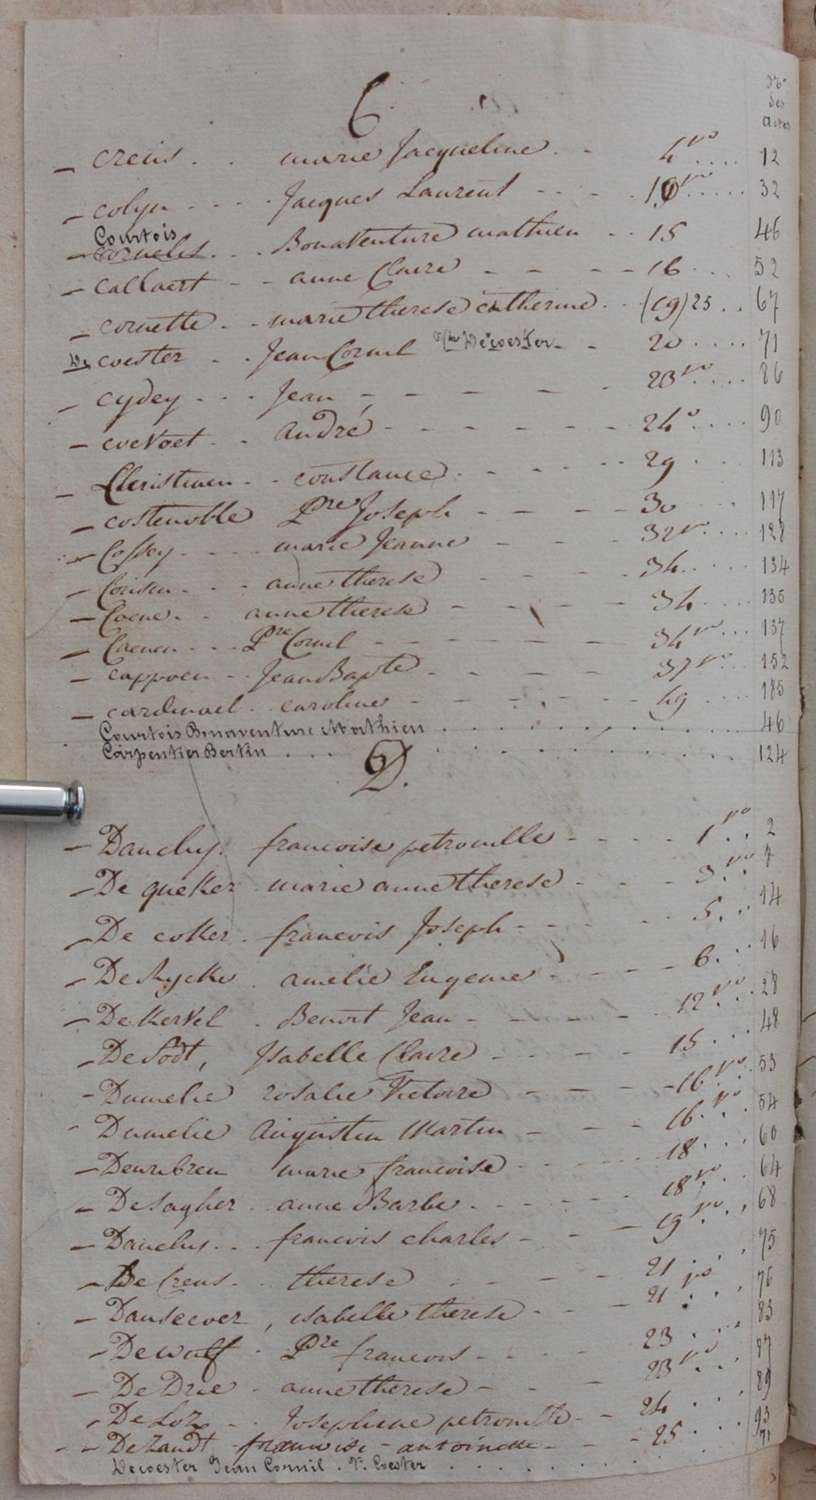 C
N°
des
actes
- creus . . marie Jacqueline . - 4 vo .... 12
- colyn - - - . Jacques Laurent - - - . 10 vo ..... 32
Courtois
- cornelis . . . Bonaventure mathieu - . . 15 46
- callaert - - anne Claire - - - - 16 . . . 52
- cornette . - marie therese catherine . . (19) 25 . . 67
De coester . . Jean Cornil V. Decoester - - 20 .... 71
- cydey . . . Jean - - - - - 23 vo .... 86
- coevoet . . andré - - - - - 24 o . . . 90
- Christiaen - - constance . - - - - 29 . . . 113
- costenoble Pre Joseph - - - - 30 . . . 117
- Cossey . . . . marie Jeanne - - - - 32 vo . . . 128
- Cousin . . . anne therese - - - - 34 .... 134
- Coene . . anne therese - - - - 34 .... 135
- Coenen . . . Pre Cornil - - - - - 34 vo . . . 137
- cappoen . . Jean Bapte - - - - 37 vo . . . 152
- cardinael . caroline - - - - - 49 . . . 185
Courtois Bonaventure Mathieu . . . . . . . . 46
Carpentier Bertin . . . . . . . . . . 124
D.
- Dauchy . francoise petronille - - - - 1 vo . . 2
- De queker . marie anne therese - - - - 3 vo . . 7
- De coker . francois Joseph - - - - 5 . . . 14
- De Rycke . amelie Eugenie - - - - 6 . . . 16
- De Kervel . Benoit Jean - - - - - 12 vo . . . 28
- De Sodt, Isabelle Claire - - - - 15 . . . 48
- Dumelie rosalie Victoire - - - - 16 vo . . 53
- Dumelie Augustin Martin - - - - 16 vo . . 54
- marie francoise - - - - 18 . . . 60
- De Sagher . anne Barbe . - - - - 18 vo . . 64
- Dauchy . . francois charles - - - - 19 vo . . 68
- De Creus . . therese - - - - 21 . . . 75
- Dansecoer, isabelle therese - - - - 21 vo . . . 76
- De wulf - Pre francois - - - - 23 . . . 83
- De Drie . anne therese - - - - 23 vo . . . 87
- De Loz . . Josephine petronille - - 24 . . . 89
- De Zandt francoise - antoinette - - - 25 . . . 93
Decoester Jean Cornil . V. Coester . . . . . . . 71